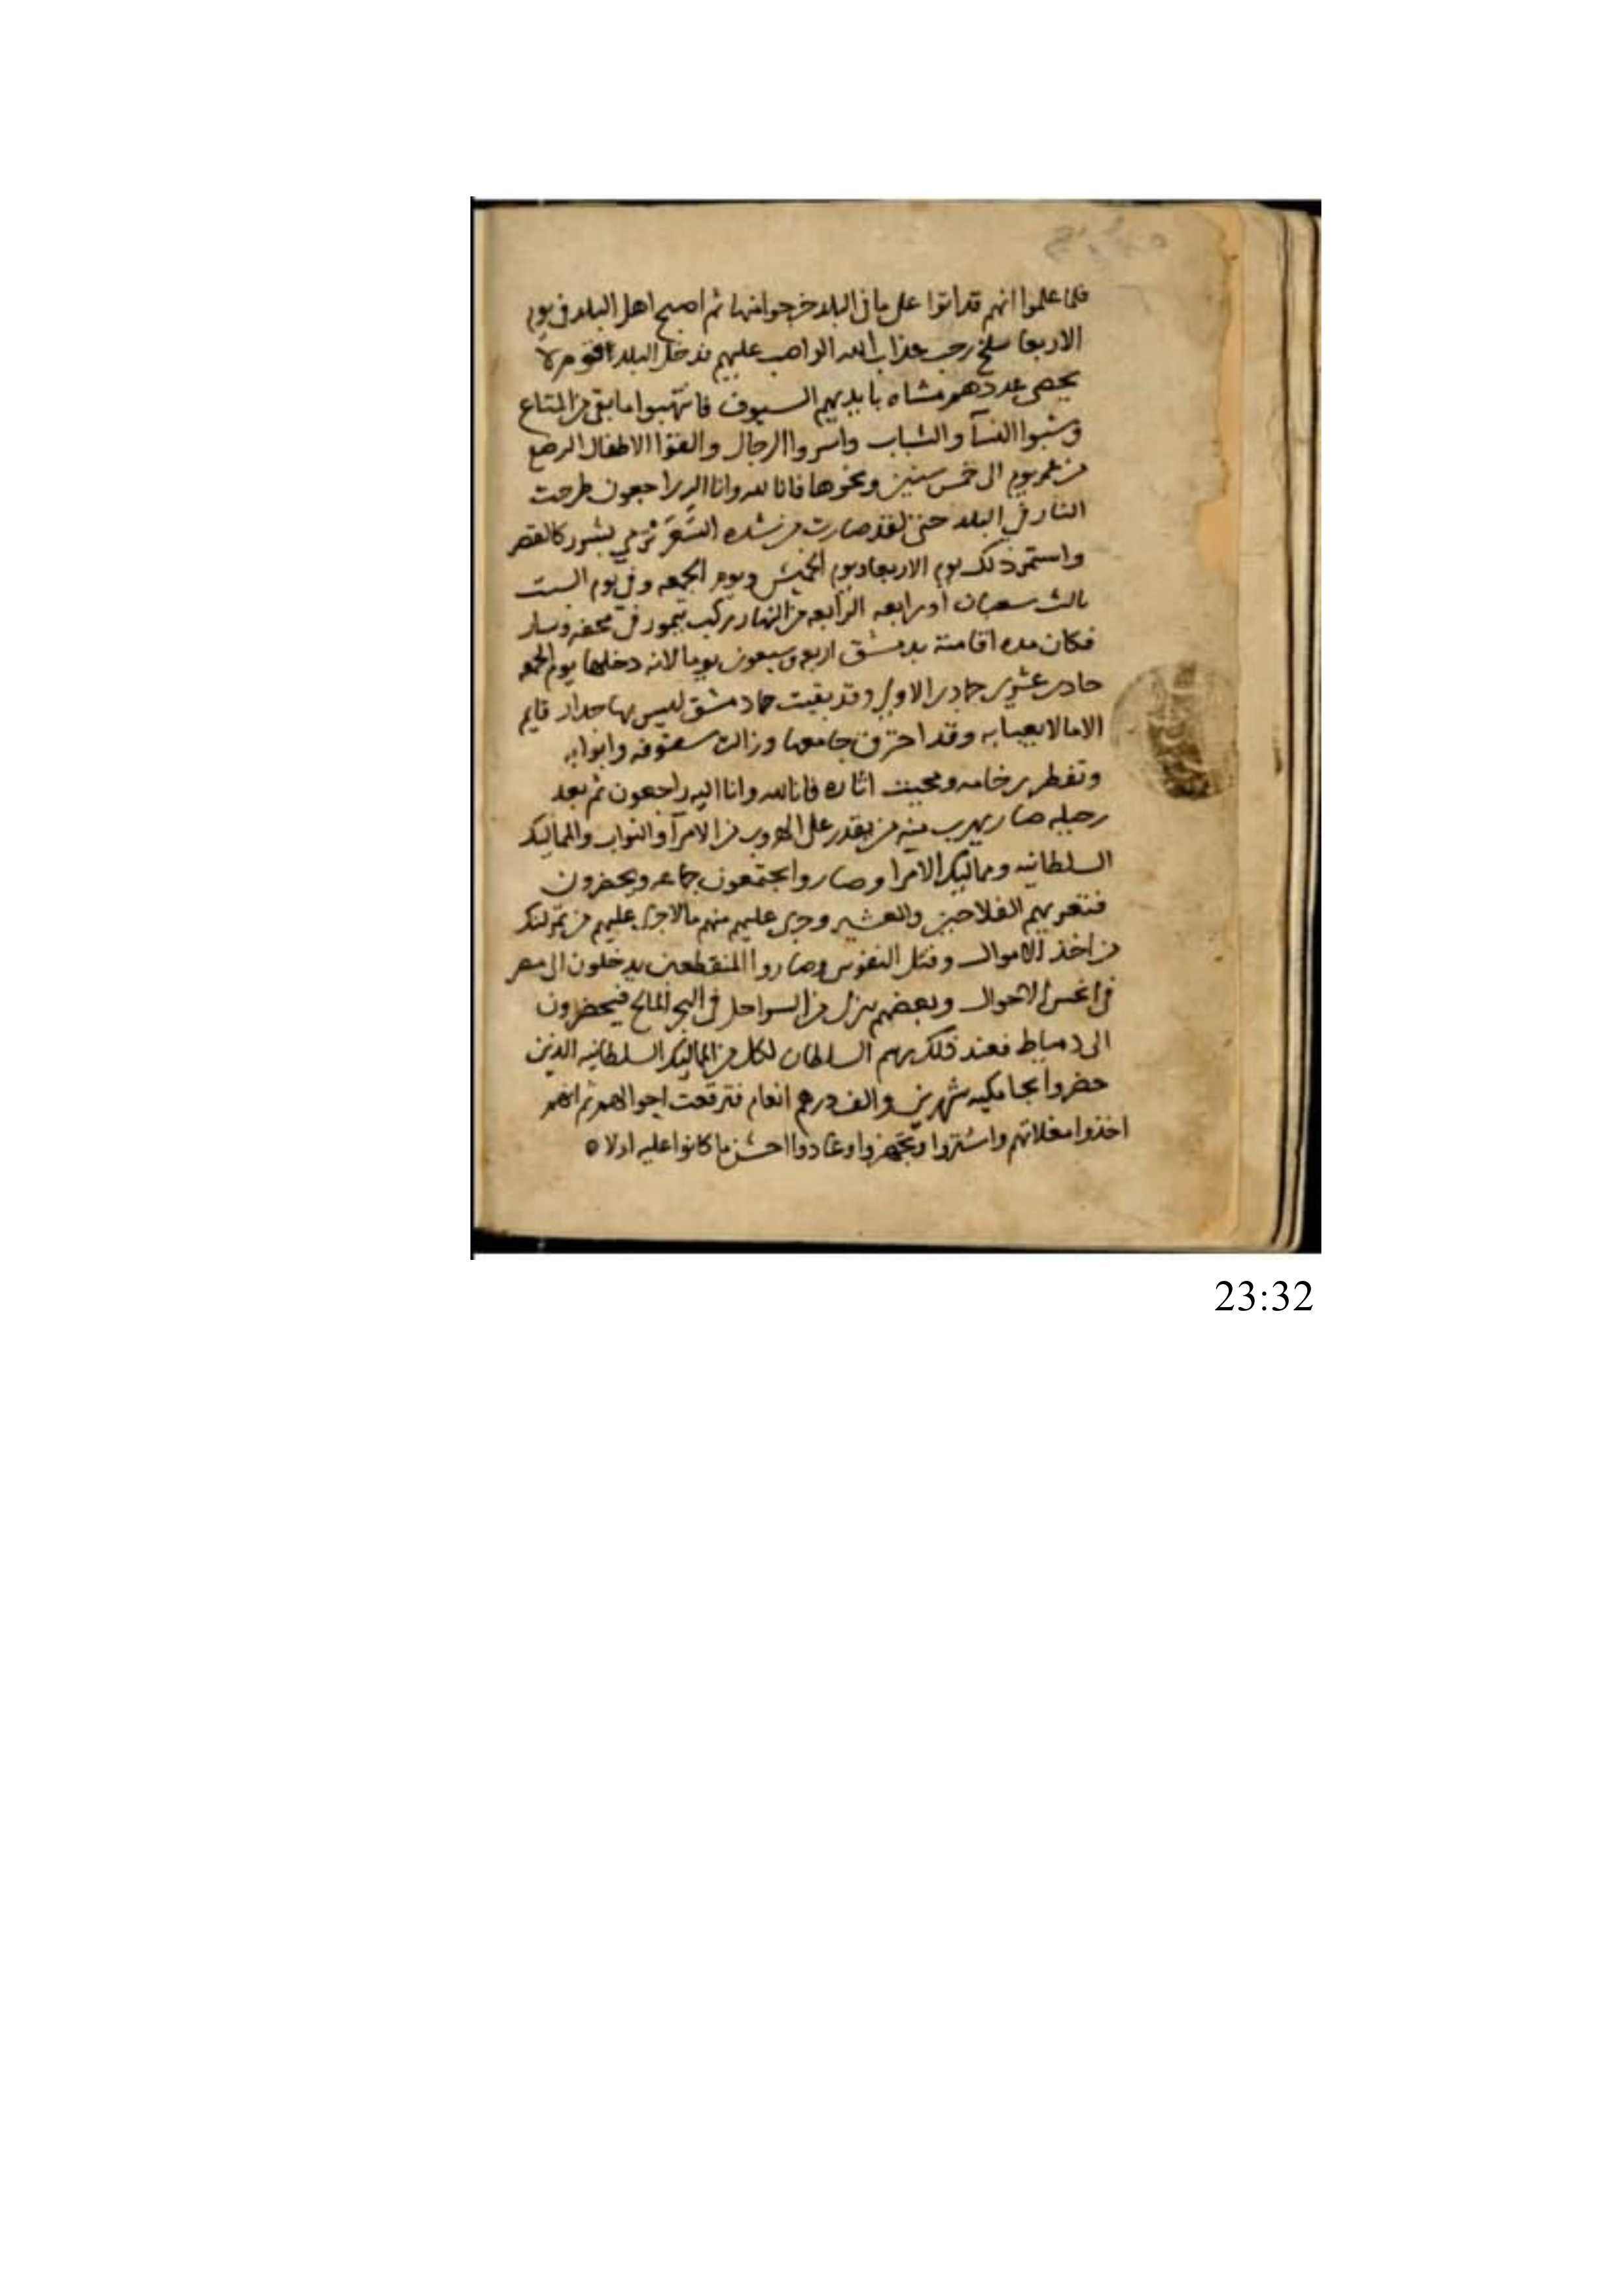 فلما علموا انهم قد اتوا على ما فى البلد خرجوا منها ثم اصبح اهل البلد فى يوم
الاربعا سلخ رجب عذاب الله الواصب عليهم فدخل البلد اقوام لا
يحصى عددهم مشاه بايديهم السيوف فانتهبوا ما بقى من المتاع
وسبوا النسآ والشباب واسروا الرجال والقوا الاطفال الرضع
من عمر يوم الى خمس سنين ونحوها فانا لله وانا اليه راجعون طرحت
النار في البلد حتى لقد صارت من شده السعر ترمي بشرر كالقصر
واستمر ذلك يوم الاربعا ويوم الخميس ويوم الجمعه وفي يوم السبت
ثالث شعبان او رابعه الرابعه من النهار ركب تيمور في محفه وسار
فكان مده اقامته بدمشق اربعه وسبعون يوما لانه دخلها يوم الجمعه
حادى عشرى جمادى الاولى وقد بقيت دمشق ليس بها جدار قايم
الا ما لا يعبا به وقد احترق جامعها وزالت سقوفه وابوابه
وتفطر رخامه ومحيت اثاره فانا لله وانا اليه راجعون ثم بعد
رحيله صار يهرب منه من يقدر على الهروب من الامرآ والنواب والمماليك
السلطانيه ومماليك الامرا وصاروا يجتمعون جماعه ويحضرون
فتعريهم الفلاحين والعشير وجرى عليهم منهم ما لا جرى عليهم من تمرلنك
من اخذ الاموال وقتل النفوس وصاروا المنقطعين يدخلون الى مصر
فى انحس الاحوال وبعضهم ينزل من السواحل فى البحر المالح فيحضرون
الى دمياط فعند ذلك رسم السلطان لكل من المماليك السلطانيه الذين
حضروا بجامكيه شهرين والف درهم انعام فترقعت احوالهم ثم انهم
اخذوا مغلاتهم واشتروا وتجهزوا وعادوا احسن ما كانوا عليه اولا ه
23:32